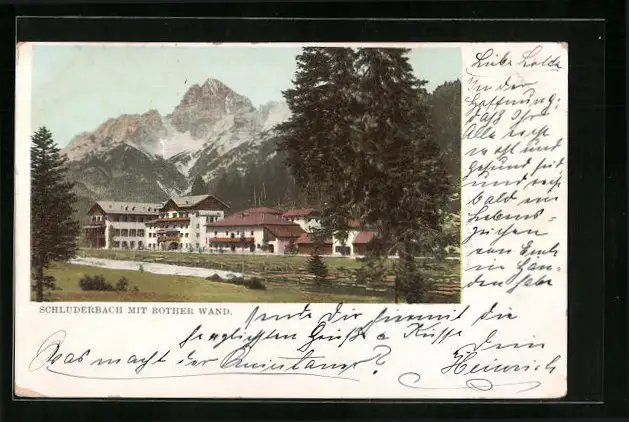 SCHLUDERBACH MIT ROTHER WAND.
Liebe Lotte
In der
Hoffnung:
daß Ihr
Alle noch
wohl und
gesund seid
und recht
bald ein
Lebens-
zeichen
von Euch
in Händen
habe
sende Dir hiermit die
herzlichsten Grüße & Küsse
Dein
Heinrich
Was macht der